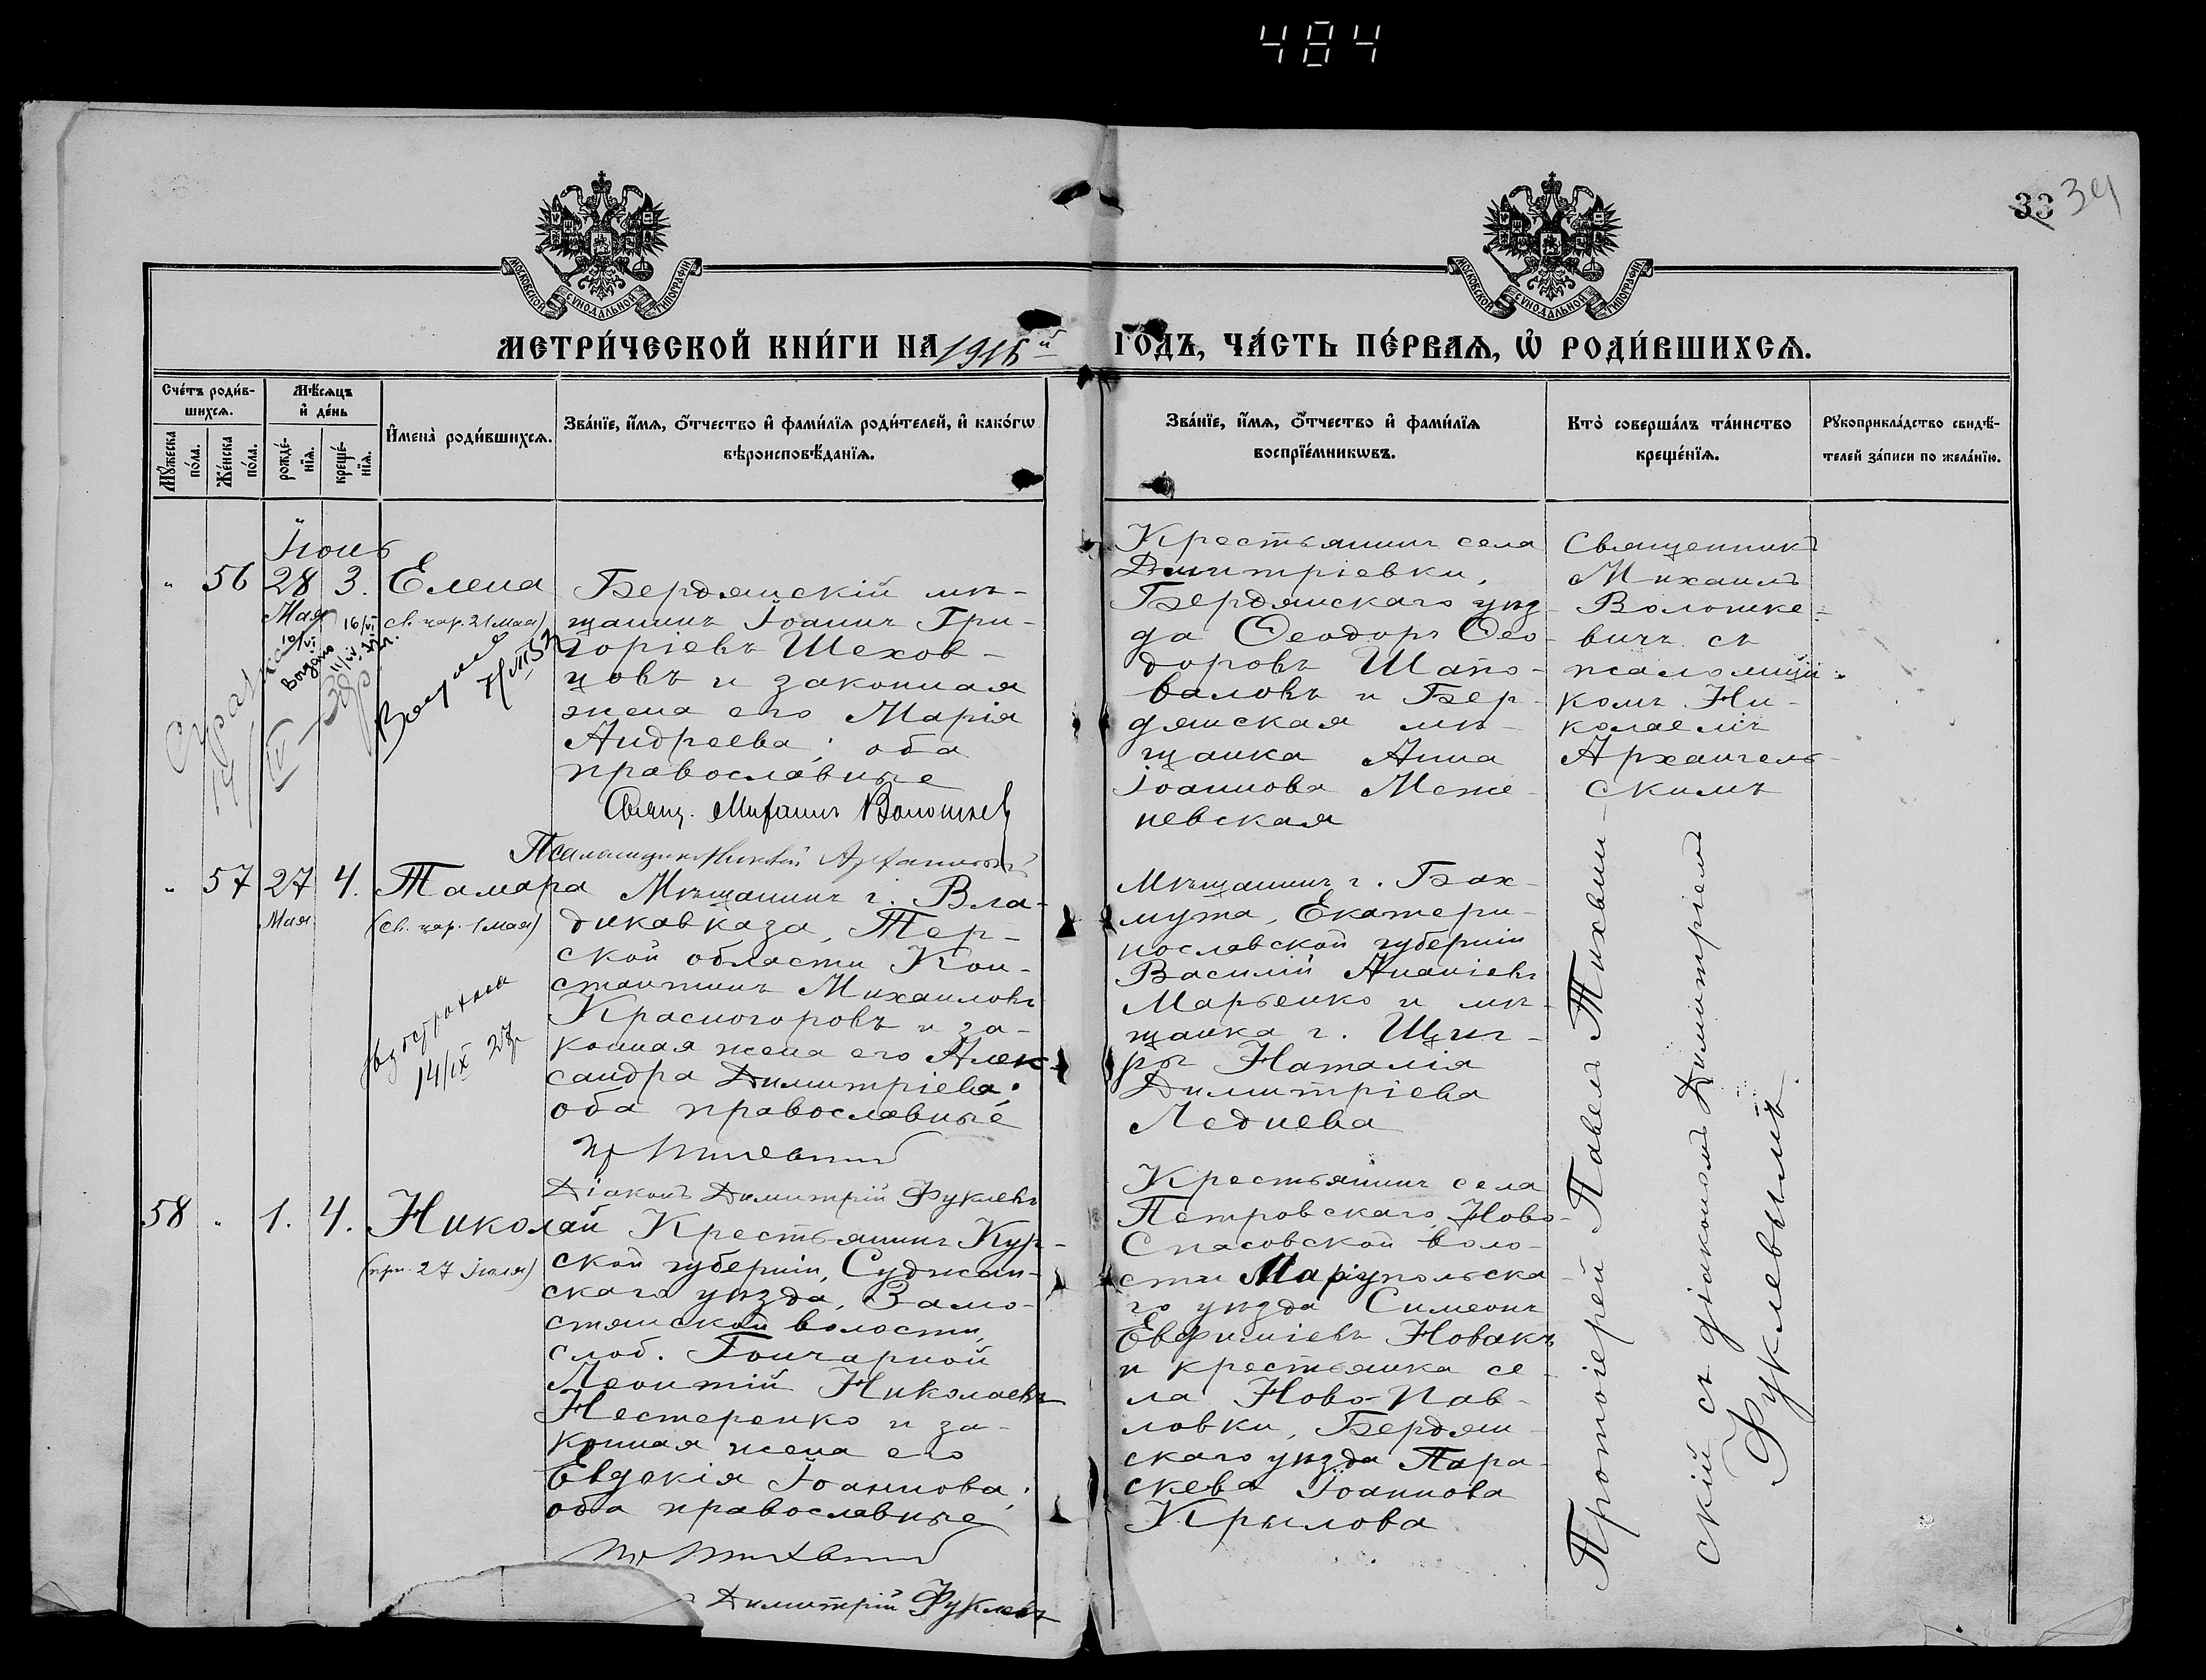 484
33 34
МОСКОВСКОЙ СѴНОДАЛЬНОЙ ТИПОГРАФІИ
МОСКОВСКОЙ СѴНОДАЛЬНОЙ ТИПОГРАФІИ
МЕТРИ́ЧЕСКОЙ КНИ́ГИ НА 1916й ГОДЪ, ЧА́СТЬ ПЕ́РВАЯ, Ѡ РОДИ́ВШИХСЯ.
Сче́тъ роди́в-
шихся.
Мꙋ́жеска по́ла.
Же́нска по́ла.
Мѣ́сяцъ
и де́нь
рожде́-
нїя.
креще́-
нїя.
Имена̀ роди́вшихся.
Зва́нїе, и́мя, о́тчество и фами́лїя роди́телей, и како́гѡ
вѣроисповѣ́данїя.
Зва́нїе, и́мя, о́тчество и фами́лїя
воспрїе́мникѡвъ.
Кто̀ соверша́лъ та́инство
креще́нїя.
Рꙋкоприкла́дство свидѣ́-
телей за́писи по жела́нїю.
Іюнь
" 56 28 3. Елена
Мая
(св. цар. 21 Мая)
Бердянскій мѣ-
щанинъ Іоаннъ Гри-
горіевъ Шехов-
цовъ и законная
жена его Марія
Андреева; оба
православные
Свящ. Михаилъ
Крестьянинъ села
Дмитріевки,
Бердянскаго уѣз-
да Ѳеодоръ Ѳео-
доровъ Шапо-
валовъ и Бер-
дянская мѣ-
щанка Анна
Іоаннова Меже-
невская
Священникъ
Михаилъ
Волошке-
вичъ съ
псаломщи-
комъ Ни-
колаемъ
Архангель-
скимъ
" 57 27 4. Тамара
Мая
(св. цар. 1 мая)
14/IX 27г
Мѣщанинъ г. Вла-
дикавказа, Тер-
ской области Кон-
стантинъ Михаиловъ
Красногоровъ и за-
конная жена его Алек-
сандра Димитріева;
оба православные
Діаконъ Димитрій Фуклевъ
Мѣщанинъ г. Бах-
мута, Екатери-
нославской губерніи
Василій Ананіевъ
Марьенко и мѣ-
щанка г. Щиг-
ры Наталія
Димитріева
Леднева
58 " 1. 4. Николай
Крестьянинъ Кур-
ской губерніи, Суджан-
скаго уѣзда, Замо-
стянской волости,
слоб. Гончарной
Леонтій Николаевъ
Нестеренко и за-
конная жена его
Евдокія Іоаннова;
оба православные
Димитрій Фуклевъ
Крестьянинъ села
Петровскаго, Ново-
Спасовской воло-
сти Маріупольска-
го уѣзда Симеонъ
Евфиміевъ Новакъ
и крестьянка се-
ла Ново-Пав-
ловки, Бердян-
скаго уѣзда Пара-
скева Іоаннова
Крылова
Протоіерей Павелъ Тихвин-
скій съ діакономъ Димитріемъ
Фуклевымъ.